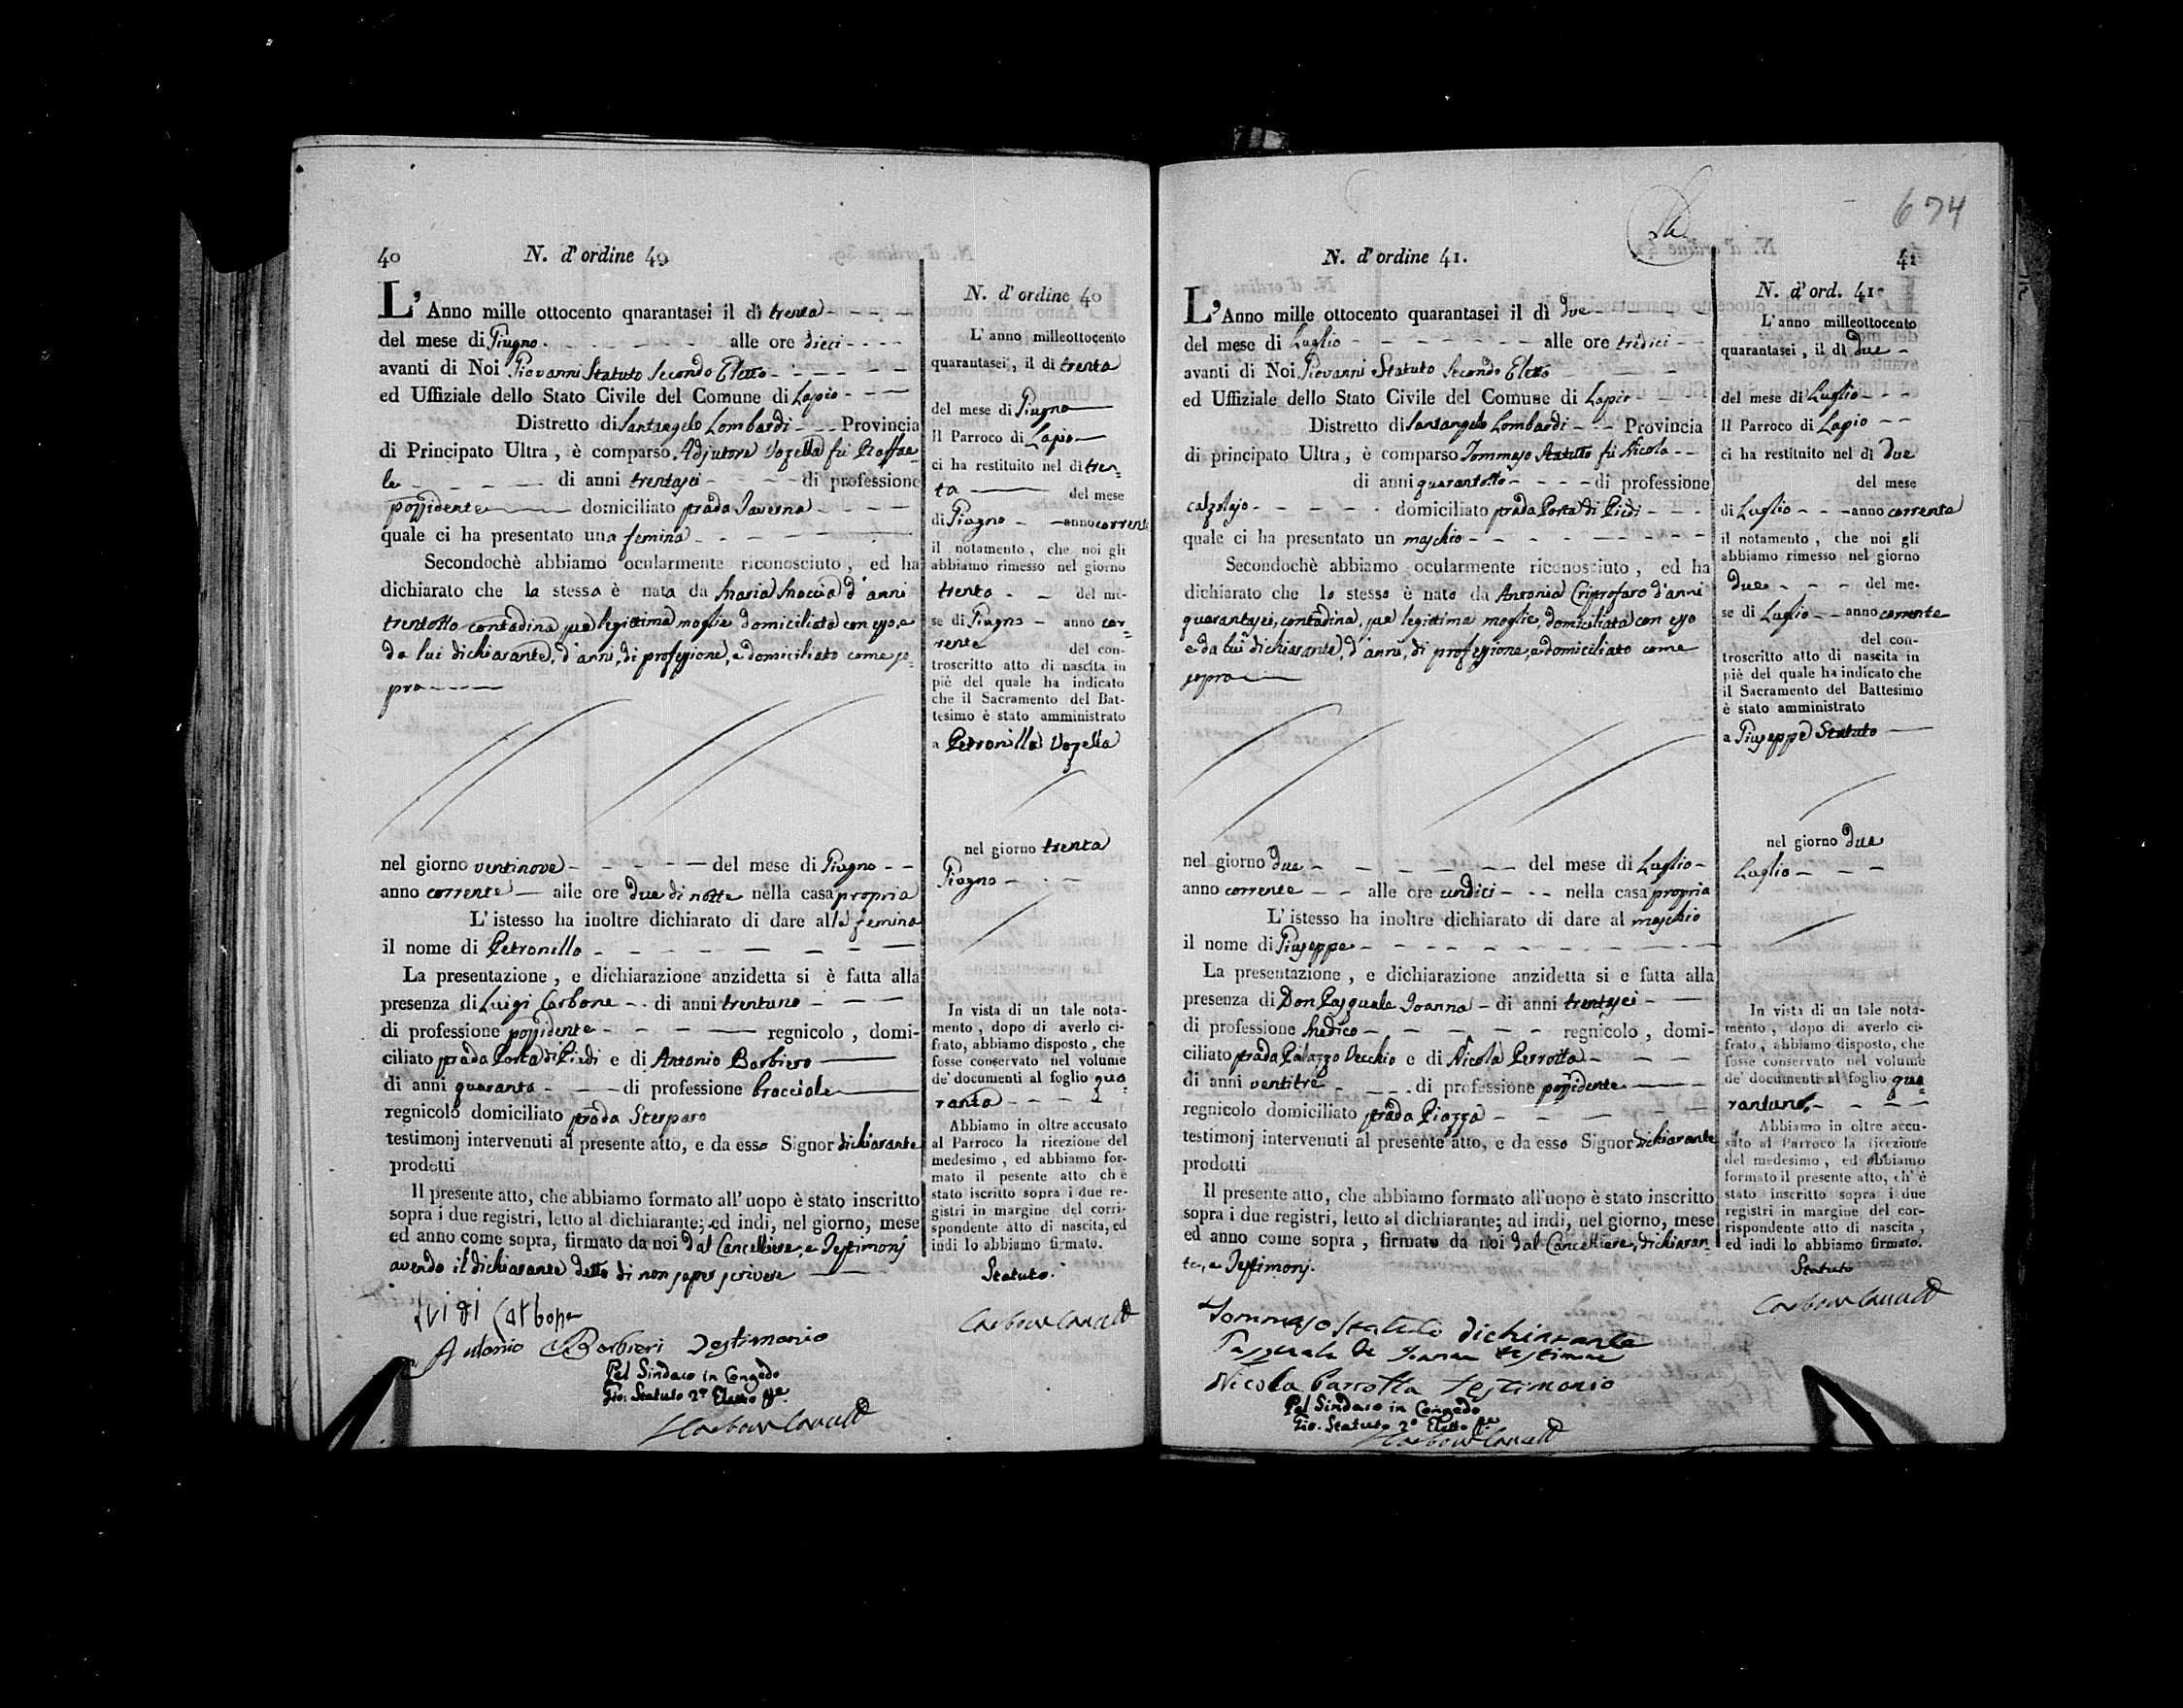 40
N. d' ordine 49
L' Anno mille ottocento qnarantasei il dì trenta
del mese di Giugno alle ore dieci
avanti di Noi Giovanni Statuto Secondo Eletto
ed Uffiziale dello Stato Civile del Comune di Lapio
Distretto di Santangelo Lombardi Provincia
di Principato Ultra, è comparso Adjutore Vozella fu Raffae=
le di anni trentasei di professione
possidente domiciliato strada Taverna
quale ci ha presentato una femina
Secondochè abbiamo ocularmente riconosciuto, ed ha
dichiarato che la stessa è nata da Maria Moccia d'anni
trentotto contadina, sua legittima moglie domiciliata con esso, e
da lui dichiarante, d'anni, di professione, e domiciliato come so=
pra
nel giorno ventinove del mese di Giugno
anno corrente alle ore due di notte nella casa propria
L' istesso ha inoltre dichiarato di dare alla femina
il nome di Petronilla
La presentazione, e dichiarazione anzidetta si è fatta alla
presenza di Luigi Carbone di anni trentuno
di professione possidente regnicolo, domi-
ciliato strada Porta di Piedi e di Antonio Barbiero
di anni quaranta di professione bracciale
regnicolo domiciliato strada Sterparo
testimonj intervenuti al presente atto, e da esso Signor dichiarante
prodotti
Il presente atto, che abbiamo formato all' uopo è stato inscritto
sopra i due registri, letto al dichiarante; ed indi, nel giorno, mese
ed anno come sopra, firmato da noi dal Cancelliere, e Testimonj
avendo il dichiarante detto di non saper scrivere
Luigi Carbone
Antonio Barbieri Testimonio
Pel Sindaco in Congedo
Gio: Statuto 2° Eletto
N. d' ordine 40
L' anno milleottocento
quarantasei, il di trenta
del mese di Giugno
Il Parroco di Lapio
ci ha restituito nel dì tren=
ta del mese
di Giugno anno corrente
il notamento, che noi gli
abbiamo rimesso nel giorno
trenta del me-
se di Giugno anno cor=
rente del con-
troscritto atto di nascita in
piè del quale ha indicato
che il Sacramento del Bat-
tesimo è stato amministrato
a Petronilla Vozella
nel giorno trenta
Giugno
In vista di un tale nota-
mento, dopo di averlo ci-
frato, abbiamo disposto, che
fosse conservato nel volume
de' documenti al foglio qua=
ranta
Abbiamo in oltre accusato
al Parroco la ricezione del
medesimo, ed abbiamo for-
mato il pesente atto ch e
stato iscritto sopra i due re-
gistri in margine del corri-
spondente atto di nascita, ed
indi lo abbiamo firmato.
Statuto
674
N. d' ordine 41.
41
L' Anno mille ottocento quarantasei il dì due
del mese di Luglio alle ore tredici
avanti di Noi Giovanni Statuto Secondo Eletto
ed Uffiziale dello Stato Civile del Comune di Lapio
Distretto di Santangelo Lombardi Provincia
di principato Ultra, è comparso Tommaso Statuto fu Nicola
di anni quarantotto di professione
calzolajo domiciliato strada Porta di Piedi
quale ci ha presentato un maschio
Secondochè abbiamo ocularmente riconosciuto, ed ha
dichiarato che lo stesso è nato da Antonia Criprofaro d'anni
quarantasei, contadina, sua legittima moglie, domiciliata con esso
e da lui dichiarante, d'anni, di professione, e domiciliato come
sopra
nel giorno due del mese di Luglio
anno corrente alle ore undici nella casa propria
L' istesso ha inoltre dichiarato di dare al maschio
il nome di Giuseppe
La presentazione, e dichiarazione anzidetta si e fatta alla
presenza di Don Pasquale Joanna di anni trentasei
di professione Medico regnicolo, domi-
ciliato strada Palazzo Vecchio e di Nicola Perrotta
di anni ventitrè di professione possidente
regnicolo domiciliato strada Piazza
testimonj intervenuti al presente atto, e da esso Signor dichiarante
prodotti
Il presente atto, che abbiamo formato all'uopo è stato inscritto
sopra i due registri, letto al dichiarante; ad indi, nel giorno, mese
ed anno come sopra, firmato da noi dal Cancelliere, dichiaran=
te, e Testimonj.
Tommaso Statuto dichiarante
Pasquale de Joanna testimone
Nicola Parrotta testimonio
Pel Sindaco in Congedo
Gio. Statuto 2° Eletto
N. d' ord. 41
L' anno milleottocento
quarantasei, il dì due
del mese di Luglio
Il Parroco di Lapio
ci ha restituito nel dì due
del mese
di Luglio anno corrente
il notamento, che noi gli
abbiamo rimesso nel giorno
due del me-
se di Luglio anno corrente
del con-
troscritto atto di nascita in
piè del quale ha indicato che
il Sacramento del Battesimo
è stato amministrato
a Giuseppe Statuto
nel giorno due
Luglio
In vista di un tale nota-
mento, dopo di averlo ci-
frato, abbiamo disposto, che
fosse conservato nel volume
de' documenti al foglio qua=
rantuno
Abbiamo in oltre accu-
sato al Parroco la ricezione
del medesimo, ed abbiamo
formato il presente atto, ch' è
stato inscritto sopra i due
registri in margine del cor-
rispondente atto di nascita,
ed indi lo abbiamo firmato.
Statuto